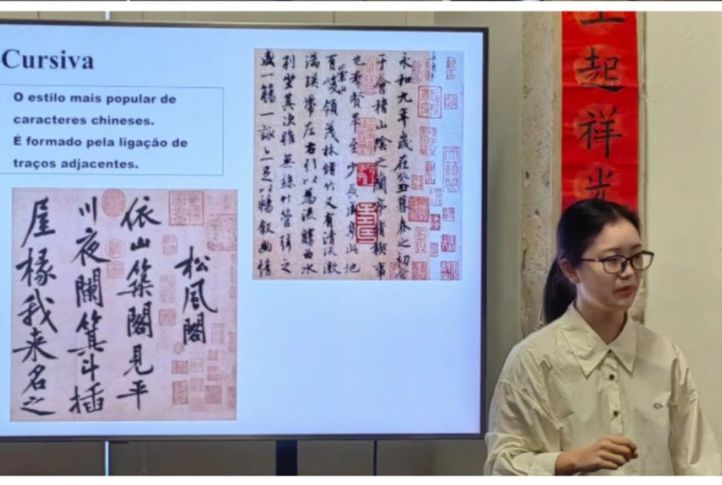 -Cursiva
O estilo mais popular de
caracteres chineses.
É formado pela ligação de
traços adjacentes.
永和九年歲在癸丑暮春之初會
于會稽山陰之蘭亭脩稧事
也羣賢畢至少長咸集此地
有崇山峻領茂林脩竹又有清流激
湍暎帶左右引以為流觴曲水
列坐其次雖無絲竹管弦之
盛一觴一詠亦足以暢敘幽情
松風閣
依山築閣見平
川夜闌箕斗插
屋椽我來名之
起祥光